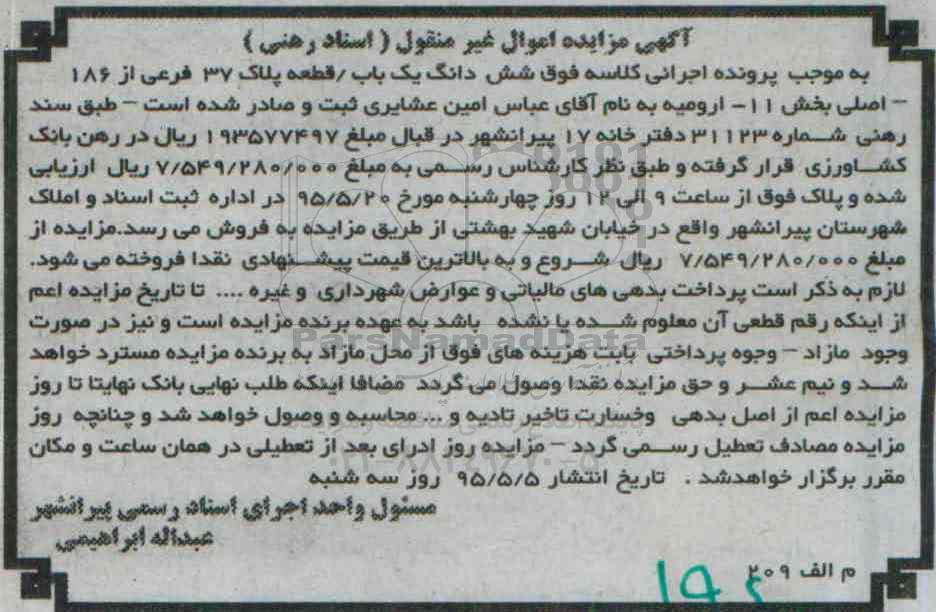 آگهی مزایده اموال غیر منقول ( اسناد رهنی )
به موجب پرونده اجرائی کلاسه فوق شش دانگ یک باب /قطعه پلاک ۳۷ فرعی از ۱۸۶
– اصلی بخش ۱۱- ارومیه به نام آقای عباس امین عشایری ثبت و صادر شده است – طبق سند
رهنی شماره ۳۱۱۲۳ دفتر خانه ۱۷ پیرانشهر در قبال مبلغ ۱۹۳۵۷۷۴۹۷ ریال در رهن بانک
کشاورزی قرار گرفته و طبق نظر کارشناس رسمی به مبلغ ۷/۵۴۹/۲۸۰/۰۰۰ ریال ارزیابی
شده و پلاک فوق از ساعت ۹ الی ۱۲ روز چهارشنبه مورخ ۹۵/۵/۲۰ در اداره ثبت اسناد و املاک
شهرستان پیرانشهر واقع در خیابان شهید بهشتی از طریق مزایده به فروش می رسد.مزایده از
مبلغ ۷/۵۴۹/۲۸۰/۰۰۰ ریال شروع و به بالاترین قیمت پیشنهادی نقدا فروخته می شود.
لازم به ذکر است پرداخت بدهی های مالیاتی و عوارض شهرداری و غیره .... تا تاریخ مزایده اعم
از اینکه رقم قطعی آن معلوم شده یا نشده باشد به عهده برنده مزایده است و نیز در صورت
وجود مازاد – وجوه پرداختی بابت هزینه های فوق از محل مازاد به برنده مزایده مسترد خواهد
شد و نیم عشر و حق مزایده نقدا وصول می گردد مضافا اینکه طلب نهایی بانک نهایتا تا روز
مزایده اعم از اصل بدهی وخسارت تاخیر تادیه و ... محاسبه و وصول خواهد شد و چنانچه روز
مزایده مصادف تعطیل رسمی گردد – مزایده روز ادرای بعد از تعطیلی در همان ساعت و مکان
مقرر برگزار خواهدشد . تاریخ انتشار ۹۵/۵/۵ روز سه شنبه
مسئول واحد اجرای اسناد رسمی پیرانشهر
عبداله ابراهیمی
م الف ۲۰۹
ParsNamadData